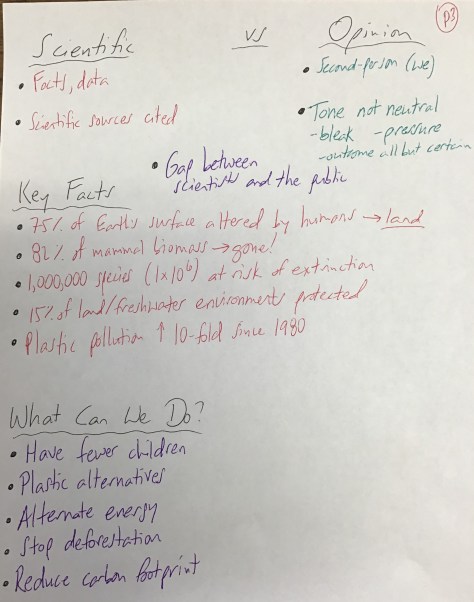 P3
Scientific vs Opinion
• Facts, data
• Scientific sources cited
• Second-person (we)
• Tone not neutral
-bleak -pressure
-outcome all but certain
• Gap between
scientists and the public
Key Facts
• 75% of Earth's surface altered by humans → land
• 82% of mammal biomass → gone!
• 1,000,000 species (1x10⁶) at risk of extinction
• 15% of land/freshwater environments protected
• Plastic pollution ↑ 10-fold since 1980
What Can We Do?
• Have fewer children
• Plastic alternatives
• Alternate energy
• Stop deforestation
• Reduce carbon footprint